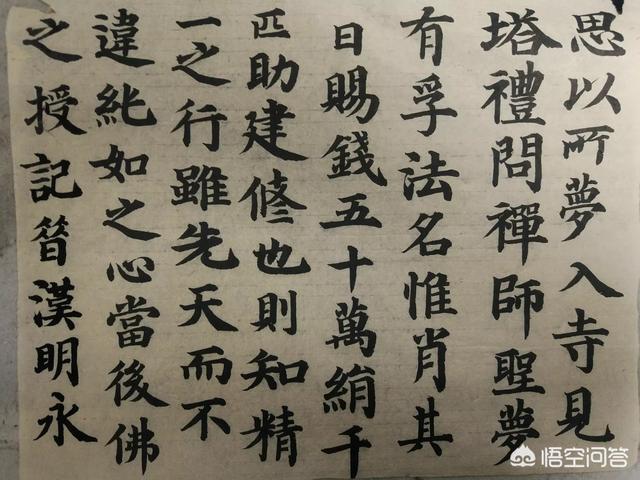 思以所夢入寺見
塔禮問禪師聖夢
有孚法名惟肖其
日賜錢五十萬絹千
匹助建修也則知精
一之行雖先天而不
違純如之心當後佛
之授記昔漢明永
悟空问答